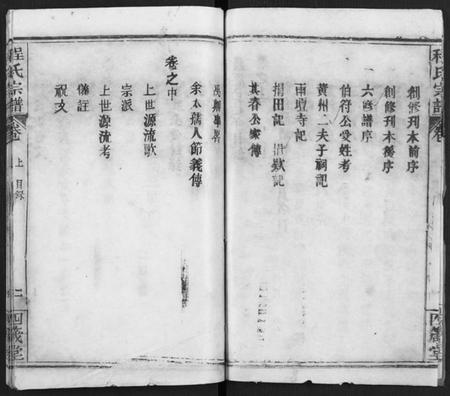 程氏宗譜
卷
四箴堂
創修刋本前序
創修刋本後序
六修譜序
伯符公受姓考
黃州二夫子祠記
兩壇寺記
捐田記
其春公家傳
余太孺人節義傳
卷之中
上世源流歌
宗派
上世源流考
條註
祝文
程氏宗譜
卷
上
目録
二
四箴堂